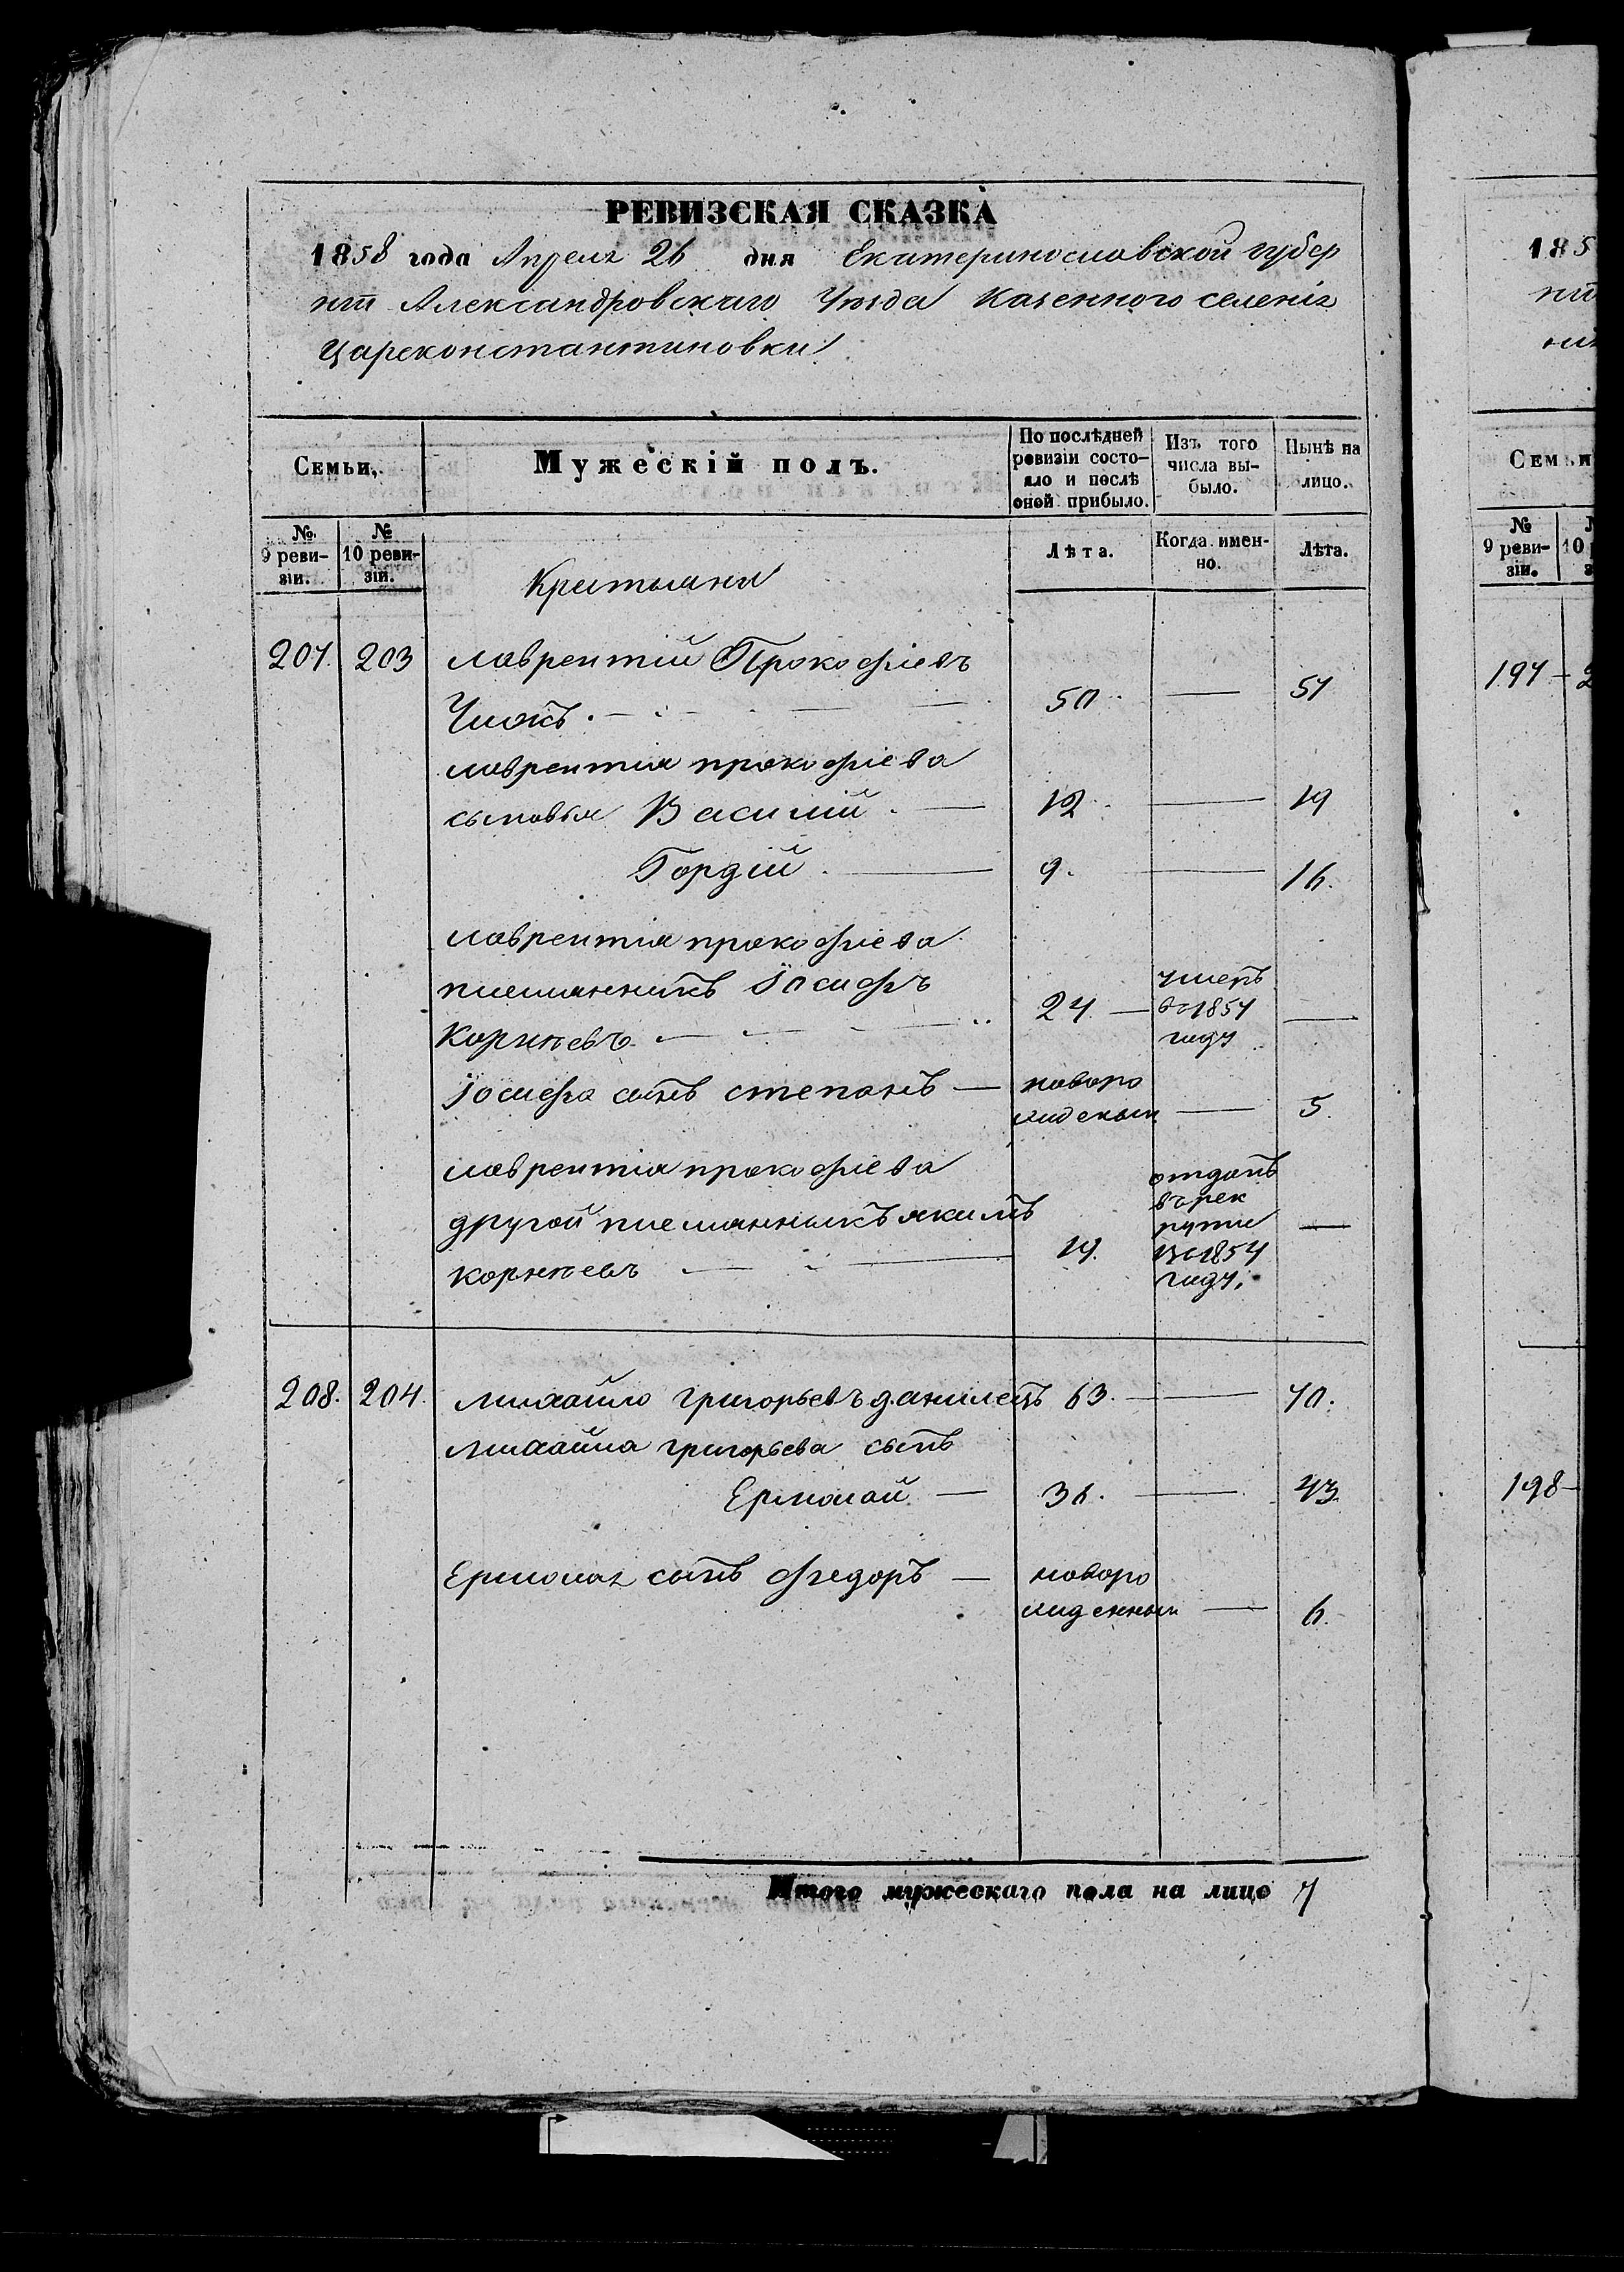 РЕВИЗСКАЯ СКАЗКА
1858 года Апреля 26 дня Екатеринославской губер
нiи Александровскаго Уѣзда Казенного селенія
Цареконстантиновки
Семьи,
Мужескій полъ.
По послѣдней ревизіи состояло и послѣ оной прибыло.
Изъ того числа выбыло.
Нынѣ на лицо.
№ 9 ревизіи.
№ 10 ревизіи.
Лѣта.
Когда именно.
Лѣта.
207. 203 лаврентій Прокофіевъ
50 — 57
лаврентія прокофіева
сыновья Василій — 12 — 19
Гордій — 9 — 16.
лаврентія прокофіева
племянникъ Іосифъ
Корнѣевъ — 24 — умеръ въ 1857 году —
Іосифа сынъ степанъ — новоро жденный — 5.
лаврентія прокофіева
другой племянникъ якимъ
корнѣевъ — 19. отданъ въ рек руты в 1854 году. —
208. 204. михайло григорьевъ данилецъ 63. — 70.
михайла григорьева сынъ
Ермолай — 36. — 43
Ермолая сынъ федоръ — новоро жденный — 6.
Итого мужескаго пола на лицо 7
185
Семьи
№ 9 ревизіи.
197
198